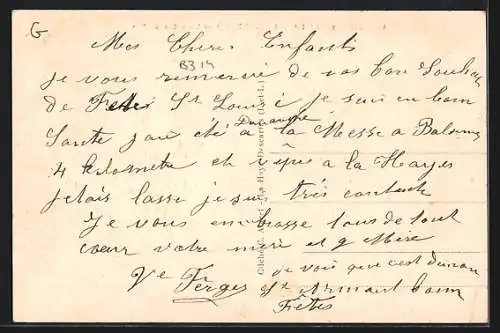 G
Mes Chers Enfants
B314
je vous remercie de vos bon Souhai
de Fetes St Louis je suis en bonne
Santé jai été a la Messe a Balesmes
Dimanche
4 kilometre et a la Hayes
jetais lasse je suis très contente
Je vous embrasse tous de tout
cœur votre mère et g Mère
Ve Ferges
je vois que c'est demain
St Armant bonne
Fêtes
La Haye-Descartes (I.-et-L.)